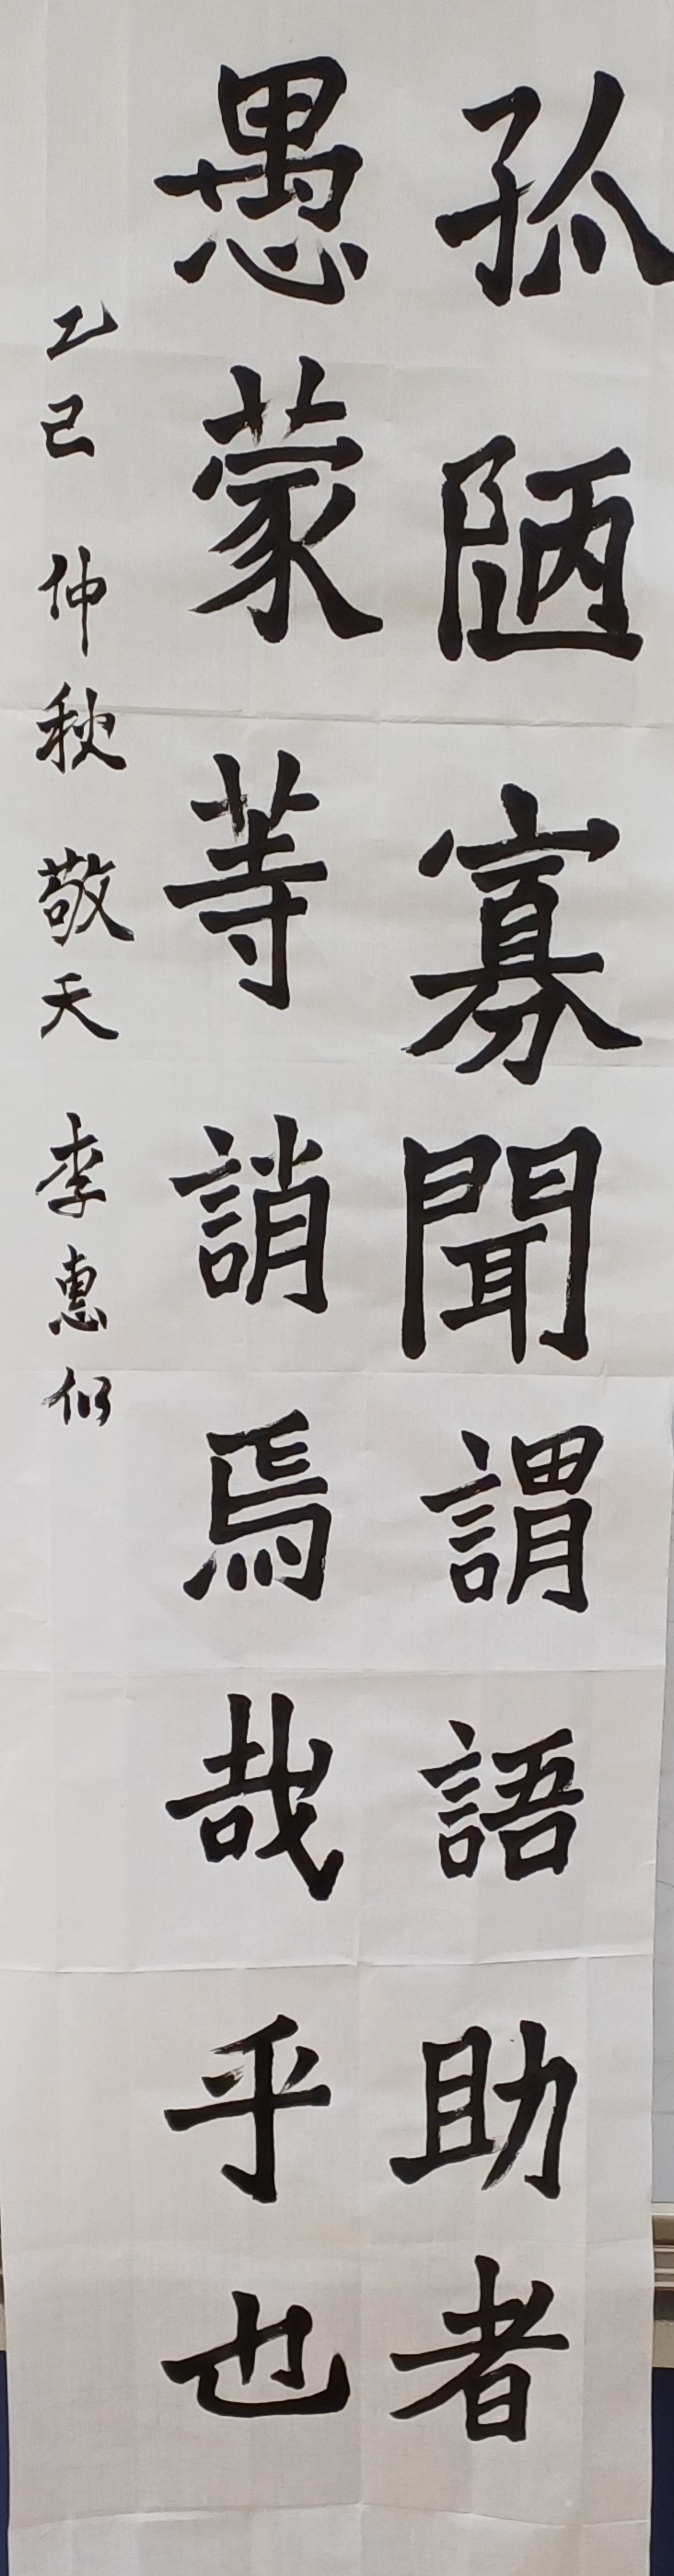 孤陋寡聞謂語助者
愚蒙等誚焉哉乎也
乙巳 仲秋 敬天 李惠